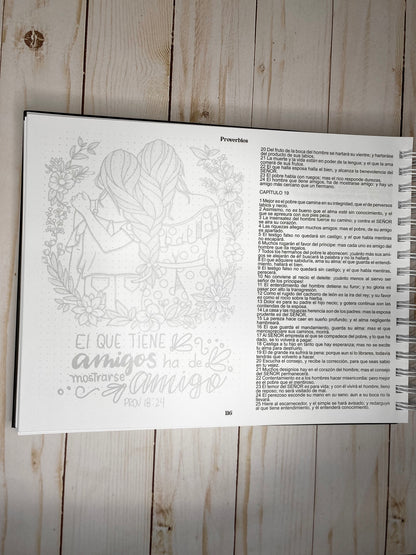 Proverbios
EL QUE TIENE
amigos ha de
mostrarse amigo
PROV 18:24
20 Del fruto de la boca del hombre se hartará su vientre; y hartaráse
del producto de sus labios.
21 La muerte y la vida están en poder de la lengua; y el que la ama
comerá de sus frutos.
22 El que halla esposa halla el bien, y alcanza la benevolencia del
SEÑOR.
23 El pobre habla con ruegos; mas el rico responde durezas.
24 El hombre que tiene amigos, ha de mostrarse amigo: y hay un
amigo más cercano que un hermano.
CAPITULO 19
1 Mejor es el pobre que camina en su integridad, que el de perversos
labios y necio.
2 Asimismo, no es bueno que el alma esté sin conocimiento, y el
que se apresura con sus pies peca.
3 La insensatez del hombre tuerce su camino; y contra el SEÑOR
se aira su corazón.
4 Las riquezas allegan muchos amigos: mas el pobre, de su amigo
es apartado.
5 El testigo falso no quedará sin castigo; y el que habla mentiras
no escapará.
6 Muchos rogarán el favor del príncipe: mas cada uno es amigo del
hombre que da regalos.
7 Todos los hermanos del pobre le aborrecen; ¡cuánto más sus ami-
gos se alejarán de él! buscará la palabra y no la hallará.
8 El que adquiere sabiduría, ama su alma: el que guarda el entendi-
miento, hallará el bien.
9 El testigo falso no quedará sin castigo; y el que habla mentiras,
perecerá.
10 No conviene al necio el deleite: ¡cuánto menos al siervo ser
señor de los príncipes!
11 El entendimiento del hombre detiene su furor; y su gloria es
pasar por alto la transgresión.
12 Como el rugido del cachorro de león es la ira del rey; y su favor
es como el rocío sobre la hierba.
13 Dolor es para su padre el hijo necio; y gotera continua son las
contiendas de la esposa.
14 La casa y las riquezas herencia son de los padres: mas la esposa
prudente es del SEÑOR.
15 La pereza hace caer en sueño profundo; y el alma negligente
hambreará.
16 El que guarda el mandamiento, guarda su alma: mas el que
menospreciare sus caminos, morirá.
17 Al SEÑOR empresta el que se compadece del pobre, y lo que ha
dado, se lo volverá a pagar.
18 Castiga a tu hijo en tanto que hay esperanza; mas no se excite
tu alma para destruirlo.
19 El de grande ira sufrirá la pena: porque aun si lo librares, todavía
tendrás que volverlo a hacer.
20 Escucha el consejo, y recibe la corrección, para que seas sabio
en tu vejez.
21 Muchos designios hay en el corazón del hombre; mas el consejo
del SEÑOR permanecerá.
22 Contentamiento es a los hombres hacer misericordia: pero mejor
es el pobre que el mentiroso.
23 El temor del SEÑOR es para vida; y con él vivirá el hombre, lleno
de reposo; no será visitado de mal.
24 El perezoso esconde su mano en su seno: aun a su boca no la
llevará.
25 Hiere al escarnecedor, y el simple se hará avisado; y redarguyen
al que tiene entendimiento, y él entenderá conocimiento).
116